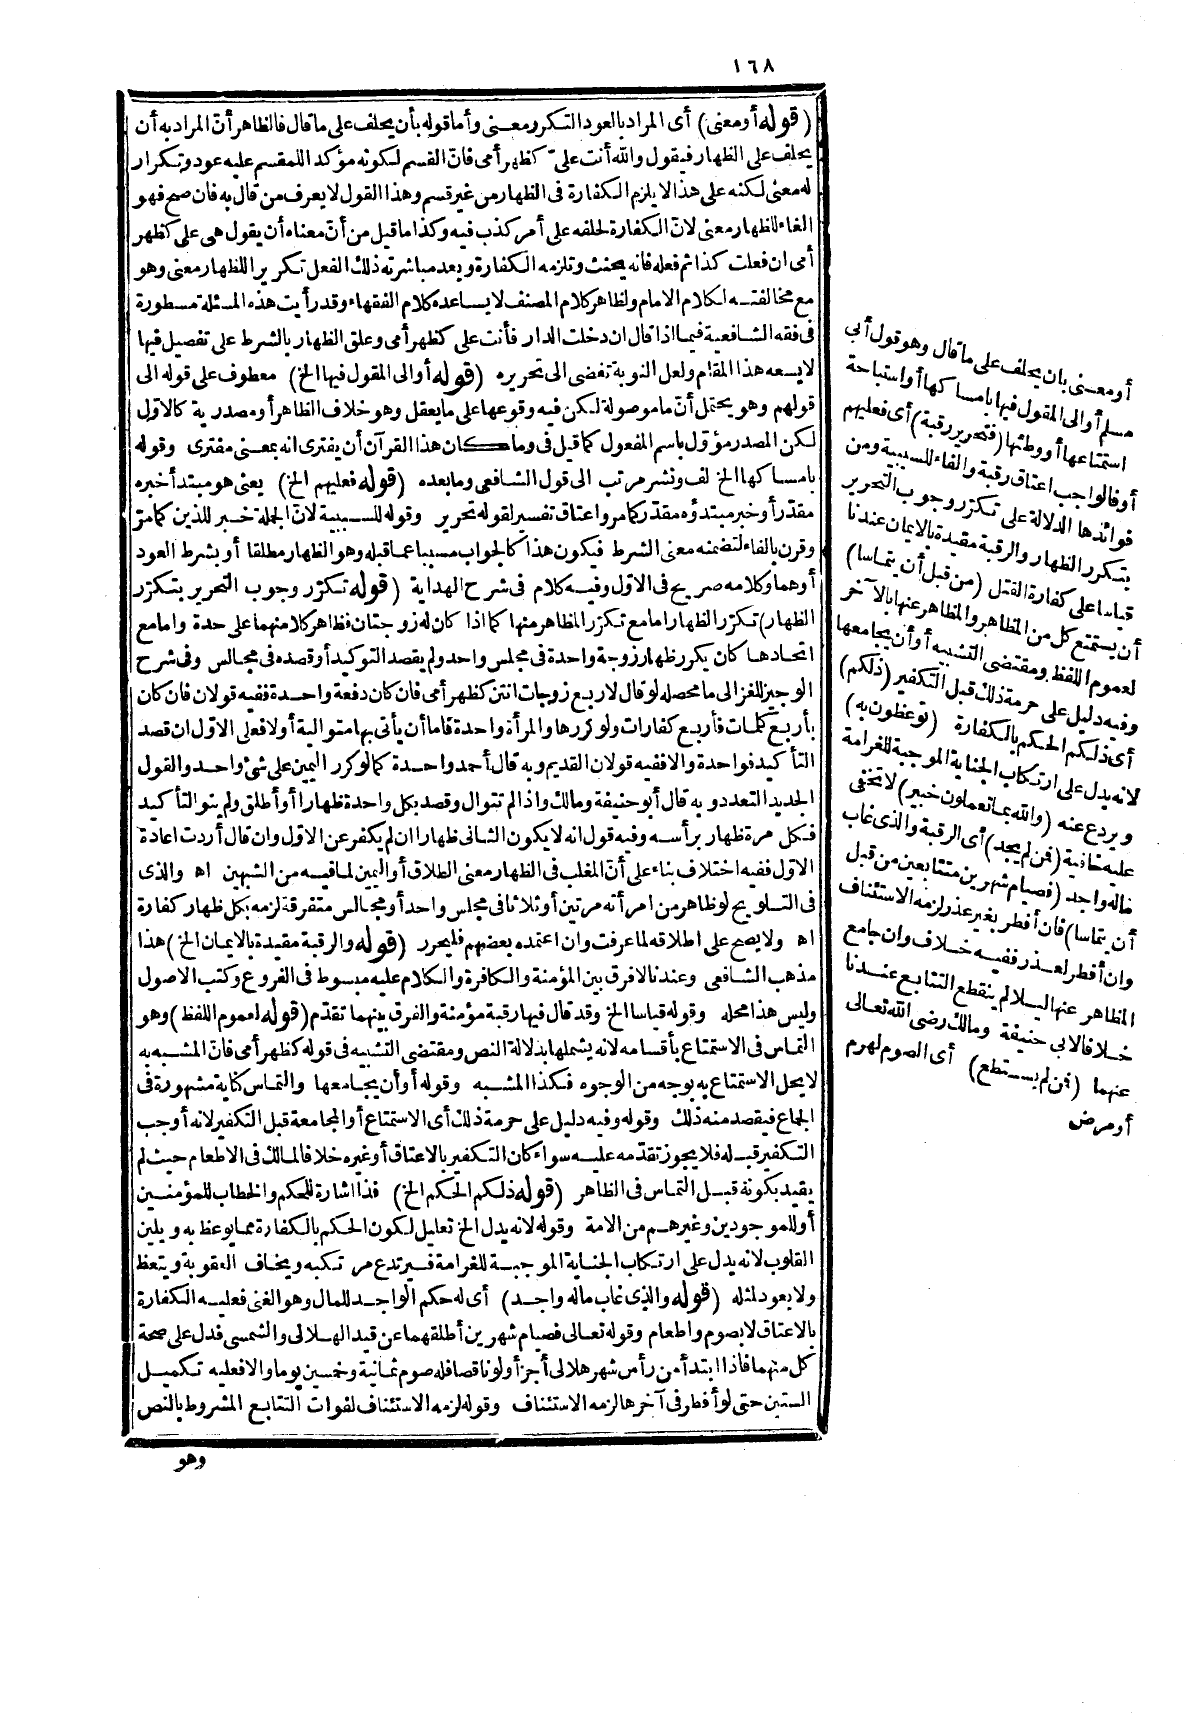 ١٦٨
(قوله أو معنى) أى المراد بالعود التكرر معنى وأما قوله بأن يحلف على ما قال فالظاهر أنّ المراد به أن
يحلف على الظهار فيقول والله أنت علىّ كظهر أمى فانّ القسم لكونه مؤكد اللمقسم عليه عود وتكرار
له معنى لكنه على هذا لا يلزم الكفارة فى الظهار من غير قسم وهذا القول لا يعرف من قال به فان صح فهو
الغاء للظهار معنى لانّ الكفارة لحلفه على أمر كذب فيه وكذا ما قيل من أنّ معناه أن يقول هى على كظهر
أمى ان فعلت كذا ثم فعله فانه يحنث وتلزمه الكفارة وبعد مباشرته ذلك الفعل تكرير اللظهار معنى وهو
مع مخالفته لكلام الامام ولظاهر كلام المصنف لا يساعده كلام الفقهاء وقد رأيت هذه المسئلة مسطورة
فى فقه الشافعية فيما اذا قال ان دخلت الدار فأنت على كظهر أمى وعلق الظهار بالشرط على تفصيل فيها
لا يسعه هذا المقام ولعل النوبة تفضى الى تحريره (قوله أو الى المقول فيها الخ) معطوف على قوله الى
قولهم وهو يحتمل أنّ ما موصولة لكن فيه وقوعها على ما يعقل وهو خلاف الظاهر أو مصدرية كالاوّل
لكن المصدر مؤوّل باسم المفعول كما قيل فى وما كان هذا القرآن أن يفترى انه بمعنى مفترى وقوله
بامساكها الخ لف ونشر مرتب الى قول الشافعى وما بعده (قوله فعليهم الخ) يعنى هو مبتدأ خبره
مقدّر أو خبر مبتدؤه مقدّر كما مر واعتاق تفسير لقوله تحرير وقوله للسببية لانّ الجملة خبر للذين كما مرّ
وقرن بالفاء لتضمنه معنى الشرط فيكون هذا كالجواب مسببا عما قبله وهو الظهار مطلقا أو بشرط العود
أو هما وكلامه صريح فى الاوّل وفيه كلام فى شرح الهداية (قوله تكرّر وجوب التحرير بتكرّر
الظهار) تكرّر الظهار اما مع تكرّر المظاهر منها كما اذا كان له زوجتان فظاهر كلا منهما على حدة واما مع
اتحادها كان يكرر ظهار زوجة واحدة فى مجلس واحد ولم يقصد التوكيد أو قصده فى مجالس وفى شرح
الوجيز للغزالى ما محصله لو قال لاربع زوجات انتن كظهر أمى فان كان دفعة واحدة ففيه قولان فان كان
بأربع كلمات فأربع كفارات ولو كررها والمرأة واحدة فاما أن يأتى بها متوالية أولا فعلى الاوّل ان قصد
التأكيد فواحدة والا ففيه قولان القديم وبه قال أحمد واحدة كما لو كرر اليمين على شئ واحد والقول
الجديد التعدد وبه قال أبو حنيفة ومالك واذا لم تتوال وقصد بكل واحدة ظهارا أو أطلق ولم ينو التأكيد
فكل مرة ظهار برأسه وفيه قول انه لا يكون الثانى ظهارا ان لم يكفر عن الاوّل وان قال أردت اعادة
الاوّل ففيه اختلاف بناء على أنّ المغلب فى الظهار معنى الطلاق أو اليمين لما فيه من الشبهين اه والذى
فى التلويح لو ظاهر من امرأته مرتين أو ثلاثا فى مجلس واحد أو مجالس متفرقة لزمه بكل ظهار كفارة
اه ولا يصح على اطلاقه لما عرفت وان اعتمده بعضهم فليحرر (قوله والرقبة مقيدة بالايمان الخ) هذا
مذهب الشافعى وعندنا لا فرق بين المؤمنة والكافرة والكلام عليه مبسوط فى الفروع وكتب الاصول
وليس هذا محله وقوله قياسا الخ وقد قال فيها رقبة مؤمنة والفرق بينهما تقدّم (قوله لعموم اللفظ) وهو
التماس فى الاستمتاع بأقسامه لانه يشملها بدلالة النص ومقتضى التشبيه فى قوله كظهر أمى فانّ المشبه به
لا يحل الاستمتاع به بوجه من الوجوه فكذا المشبه وقوله أو أن يجامعها والتماس كناية مشهورة فى
الجماع فيقصد منه ذلك وقوله وفيه دليل على حرمة ذلك أى الاستمتاع أو المجامعة قبل التكفير لانه أوجب
التكفير قبله فلا يجوز تقدّمه عليه سواء كان التكفير بالاعتاق أو غيره خلافا لمالك فى الاطعام حيث لم
يقيد بكونه قبل التماس فى الظاهر (قوله ذلكم الحكم الخ) فذا اشارة للحكم والخطاب للمؤمنين
أو للموجودين وغيرهم من الامة وقوله لانه يدل الخ تعليل لكون الحكم بالكفارة مما يوعظ به ويلين
القلوب لانه يدل على ارتكاب الجناية الموجبة للغرامة فيرتدع مرتكبه ويخاف العقوبة ويتعظ
ولا يعود لمثله (قوله والذى غاب ماله واجد) أى له حكم الواجد للمال وهو الغنى فعليه الكفارة
بالاعتاق لا بصوم واطعام وقوله تعالى فصيام شهرين أطلقهما عن قيد الهلالى والشمسى فدل على صحة
كل منهما فاذا ابتدأ من رأس شهر هلالى أجزأ ولو ناقصا فله صوم ثمانية وخمسين يوما والا فعليه تكميل
الستين حتى لو أفطر فى آخرها لزمه الاستئناف وقوله لزمه الاستئناف لفوات التتابع المشروط بالنص
وهو
أو معنى بان يحلف على ما قال وهو قول أبى
مسلم أو الى المقول فيها بامساكها أو استباحة
استمتاعها أو وطئها (فتحرير رقبة) أى فعليهم
أو فالواجب اعتاق رقبة والفاء للسببية ومن
فوائدها الدلالة على تكرّر وجوب التحرير
بتكرر الظهار والرقبة مقيدة بالايمان عندنا
قياسا على كفارة القتل (من قبل أن يتماسا)
أن يستمتع كل من المظاهر والمظاهر عنها بالآخر
لعموم اللفظ ومقتضى التشبيه أو أن يجامعها
وفيه دليل على حرمة ذلك قبل التكفير (ذلكم)
أى ذلكم الحكم بالكفارة (توعظون به)
لانه يدل على ارتكاب الجناية الموجبة للغرامة
ويردع عنه (والله بما تعملون خبير) لا تخفى
عليه خافية (فمن لم يجد) أى الرقبة والذى غاب
ماله واجد (فصيام شهرين متتابعين من قبل
أن يتماسا) فان أفطر بغير عذر لزمه الاستئناف
وان أفطر لعذر ففيه خلاف وان جامع
المظاهر عنها ليلا لم ينقطع التتابع عندنا
خلافا لابى حنيفة ومالك رضى الله تعالى
عنهما (فمن لم يستطع) أى الصوم لهرم
أو مرض